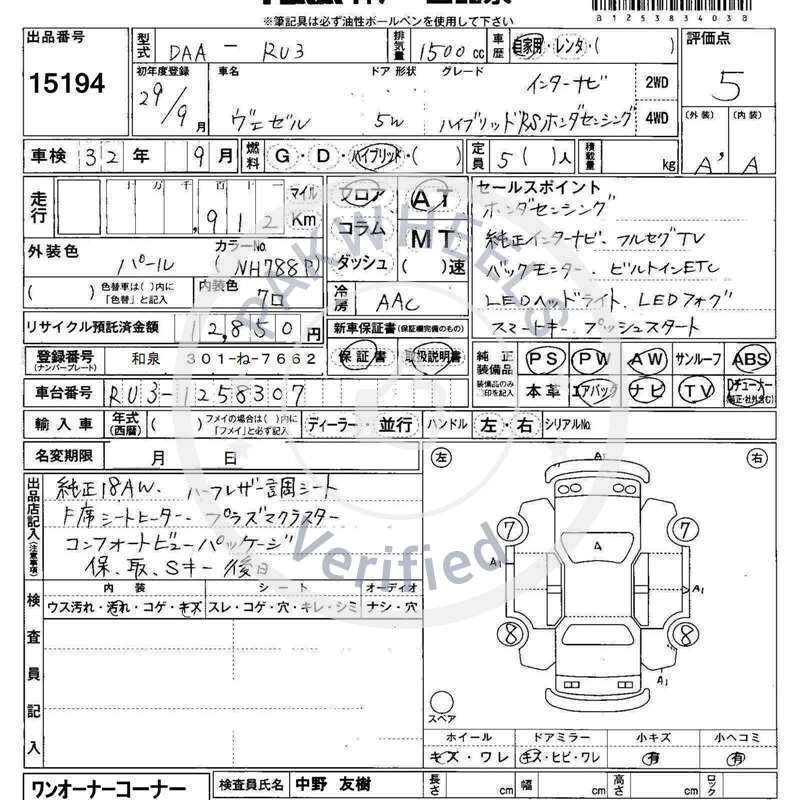 ※筆記具は必ず油性ボールペンを使用して下さい
B1253834038
出品番号 型式 DAA - RU3 排気量 1500 cc 車歴 自家用・レンタ・( ) 評価点
15194 初年度登録 29/9月 車名 ヴェゼル ドア 形状 5W グレード インターナビ 2WD 5
ハイブリッドRSホンダセンシング 4WD (外装) (内装)
車検 32年 9月 燃料 G・D・ハイブリッド・( ) 定員 5( )人 積載量 kg A' A
走行 十万千百十一 マイル フロア AT セールスポイント
,912 Km コラム MT ホンダセンシング
外装色 カラーNo. ダッシュ ( )速 純正インターナビ、フルセグTV
パール (NH788P) バックモニター、ビルトインETC
( ) 色替車は( )内に「色替」と記入 内装色 クロ 冷房 AAC LEDヘッドライト、LEDフォグ
リサイクル預託済金額 12,850円 新車保証書(保証欄完備のもの) スマートキー、プッシュスタート
登録番号(ナンバープレート) 和泉 301-ね-7662 保証書 取扱説明書 純正装備品 PS PW AW サンルーフ ABS
車台番号 RU3-1258307 装備品のみ○印を記入 本革 エアバック ナビ TV Dチューナー(純正・社外含む)
輸入車 年式(西暦) ( ) フメイの場合は( )内に「フメイ」と必ず記入 ディーラー・並行 ハンドル 左・右 シリアルNo.
名変期限 月 日 左 右
出品店記入(注意事項) 純正18AW、ハーフレザー調シート
F席シートヒーター、プラズマクラスター
コンフォートビューパッケージ
保、取、Sキー後日
検査員記入 内装 シート オーディオ
ウス汚れ・汚れ・コゲ・キズ スレ・コゲ・穴・キレ・シミ ナシ・穴
A1
7 7
A
A1 A1
8 8
A1
スペア
ホイール ドアミラー 小キズ 小ヘコミ
キズ・ワレ キズ・ヒビ・ワレ 有 有
ワンオーナーコーナー 検査員氏名 中野 友樹 長さ cm 幅 cm 高さ cm ロック
PAKWHEELS
Verified